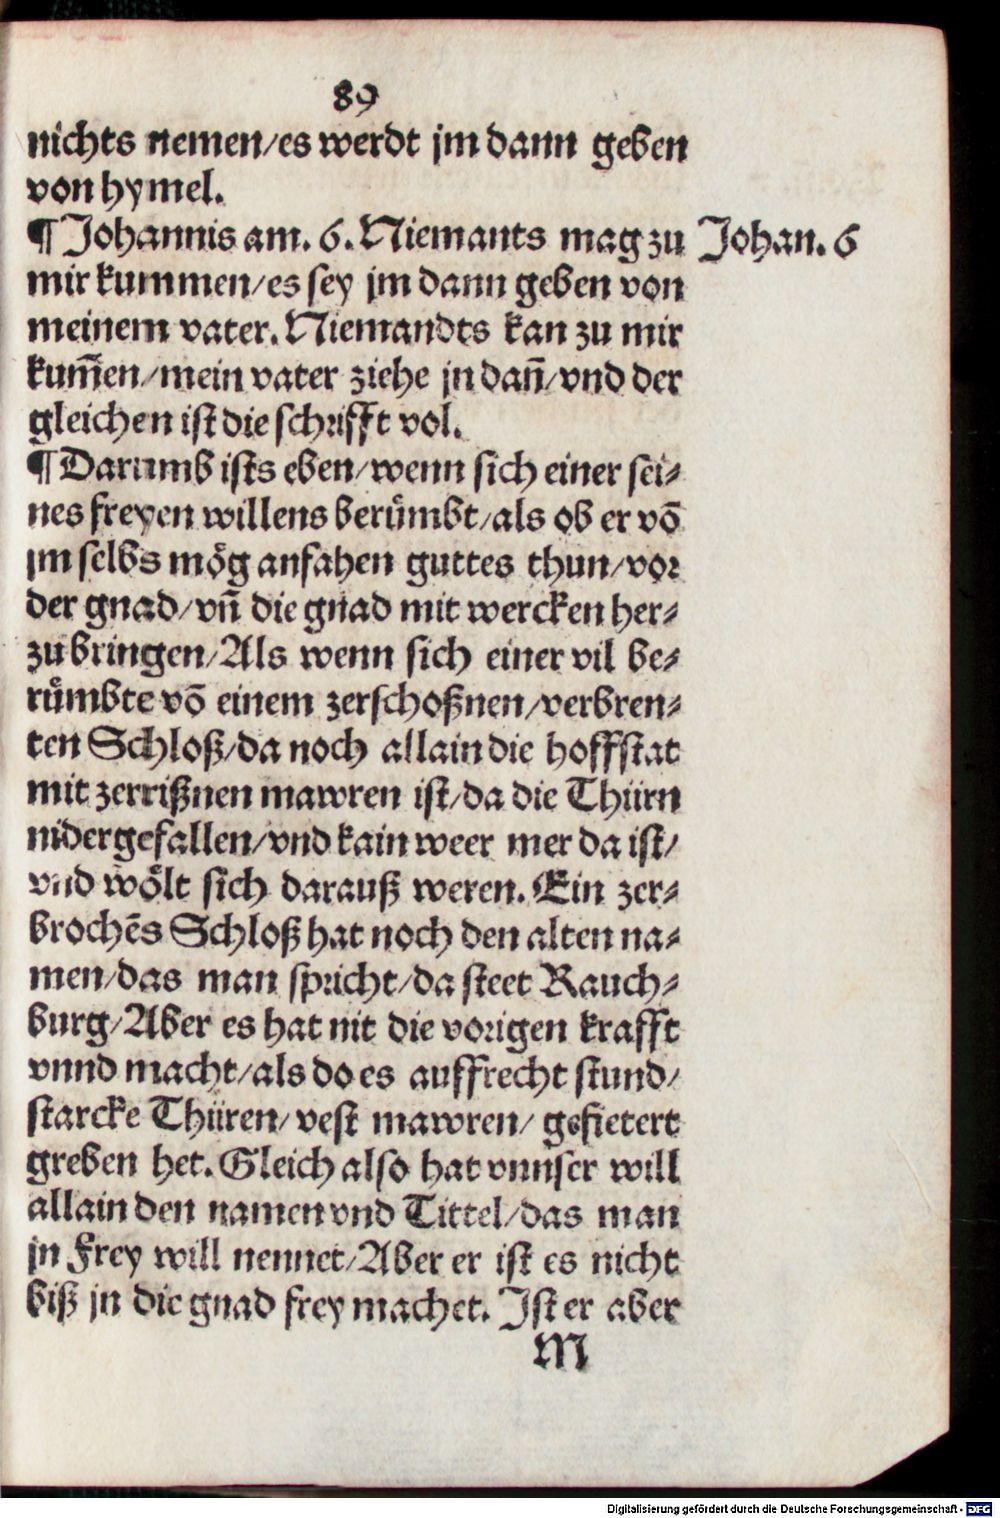 89
nichts nemen/es werdt jm dann geben
von hymel.
¶ Johannis am. 6. Niemants mag zu
Johan. 6
mir kummen/es sey jm dann geben von
meinem vater. Niemandts kan zu mir
kum̃en/mein vater ziehe jn dañ/vnd der
gleichen ist die schrifft vol.
¶ Darumb ists eben/wenn sich einer sei⸗
nes freyen willens beruͤmbt/als ob er võ
jm selbs moͤg anfahen guttes thun/vor
der gnad/vñ die gnad mit wercken her⸗
zu bringen/Als wenn sich einer vil be⸗
ruͤmbte võ einem zerschoßnen/verbren⸗
ten Schloß/da noch allain die hoffstat
mit zerrißnen mawren ist/da die Thürn
nidergefallen/vnd kain weer mer da ist/
vnd woͤlt sich darauß weren. Ein zer⸗
brochẽs Schloß hat noch den alten na⸗
men/das man spricht/da steet Rauch⸗
burg/Aber es hat nit die vorigen krafft
vnnd macht/als do es auffrecht stund/
starcke Thüren/vest mawren/gefietert
greben het. Gleich also hat vnnser will
allain den namen vnd Tittel/das man
jn Frey will nennet/Aber er ist es nicht
biß jn die gnad frey machet. Ist er aber
M
Digitalisierung gefördert durch die Deutsche Forschungsgemeinschaft - DFG